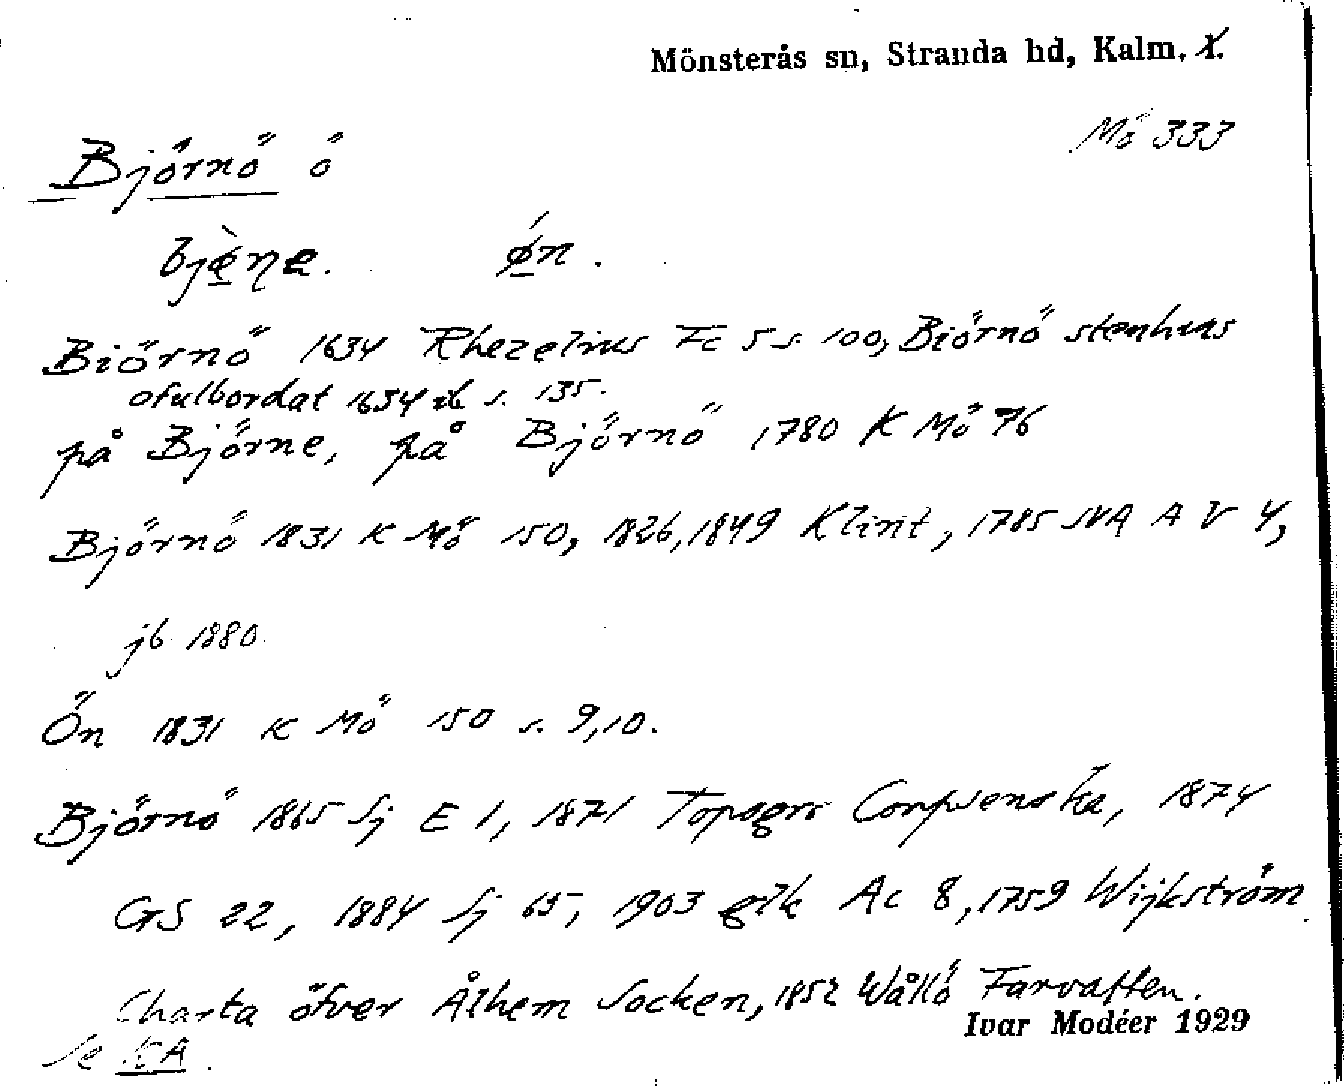 Mönsterås sn, Stranda hd, Kalm. l.
Mö 333
Björnö ö
bjø̀ṇe. ǿn.
Biörnö 1634 Rhezelius Fc 5 s. 100, Biörnö stenhus
ofulbordat 1634 ib s. 135.
på Björne, på Björnö 1780 K Mö 76
Björnö 1831 K Mö 150, 1826, 1849 Klint, 1785 SVA A V 4,
jb 1880
Ön 1831 K Mö 150 s. 9,10.
Björnö 1865 Sj E 1, 1871 Topogr Corpsens ka, 1874
GS 22, 1884 Sj 65, 1903 gik Ac 8, 1759 Wijkström
Charta öfver Ålhem Socken, 1852 Wållö Farvatten.
Ivar Modéer 1929
Se KA.